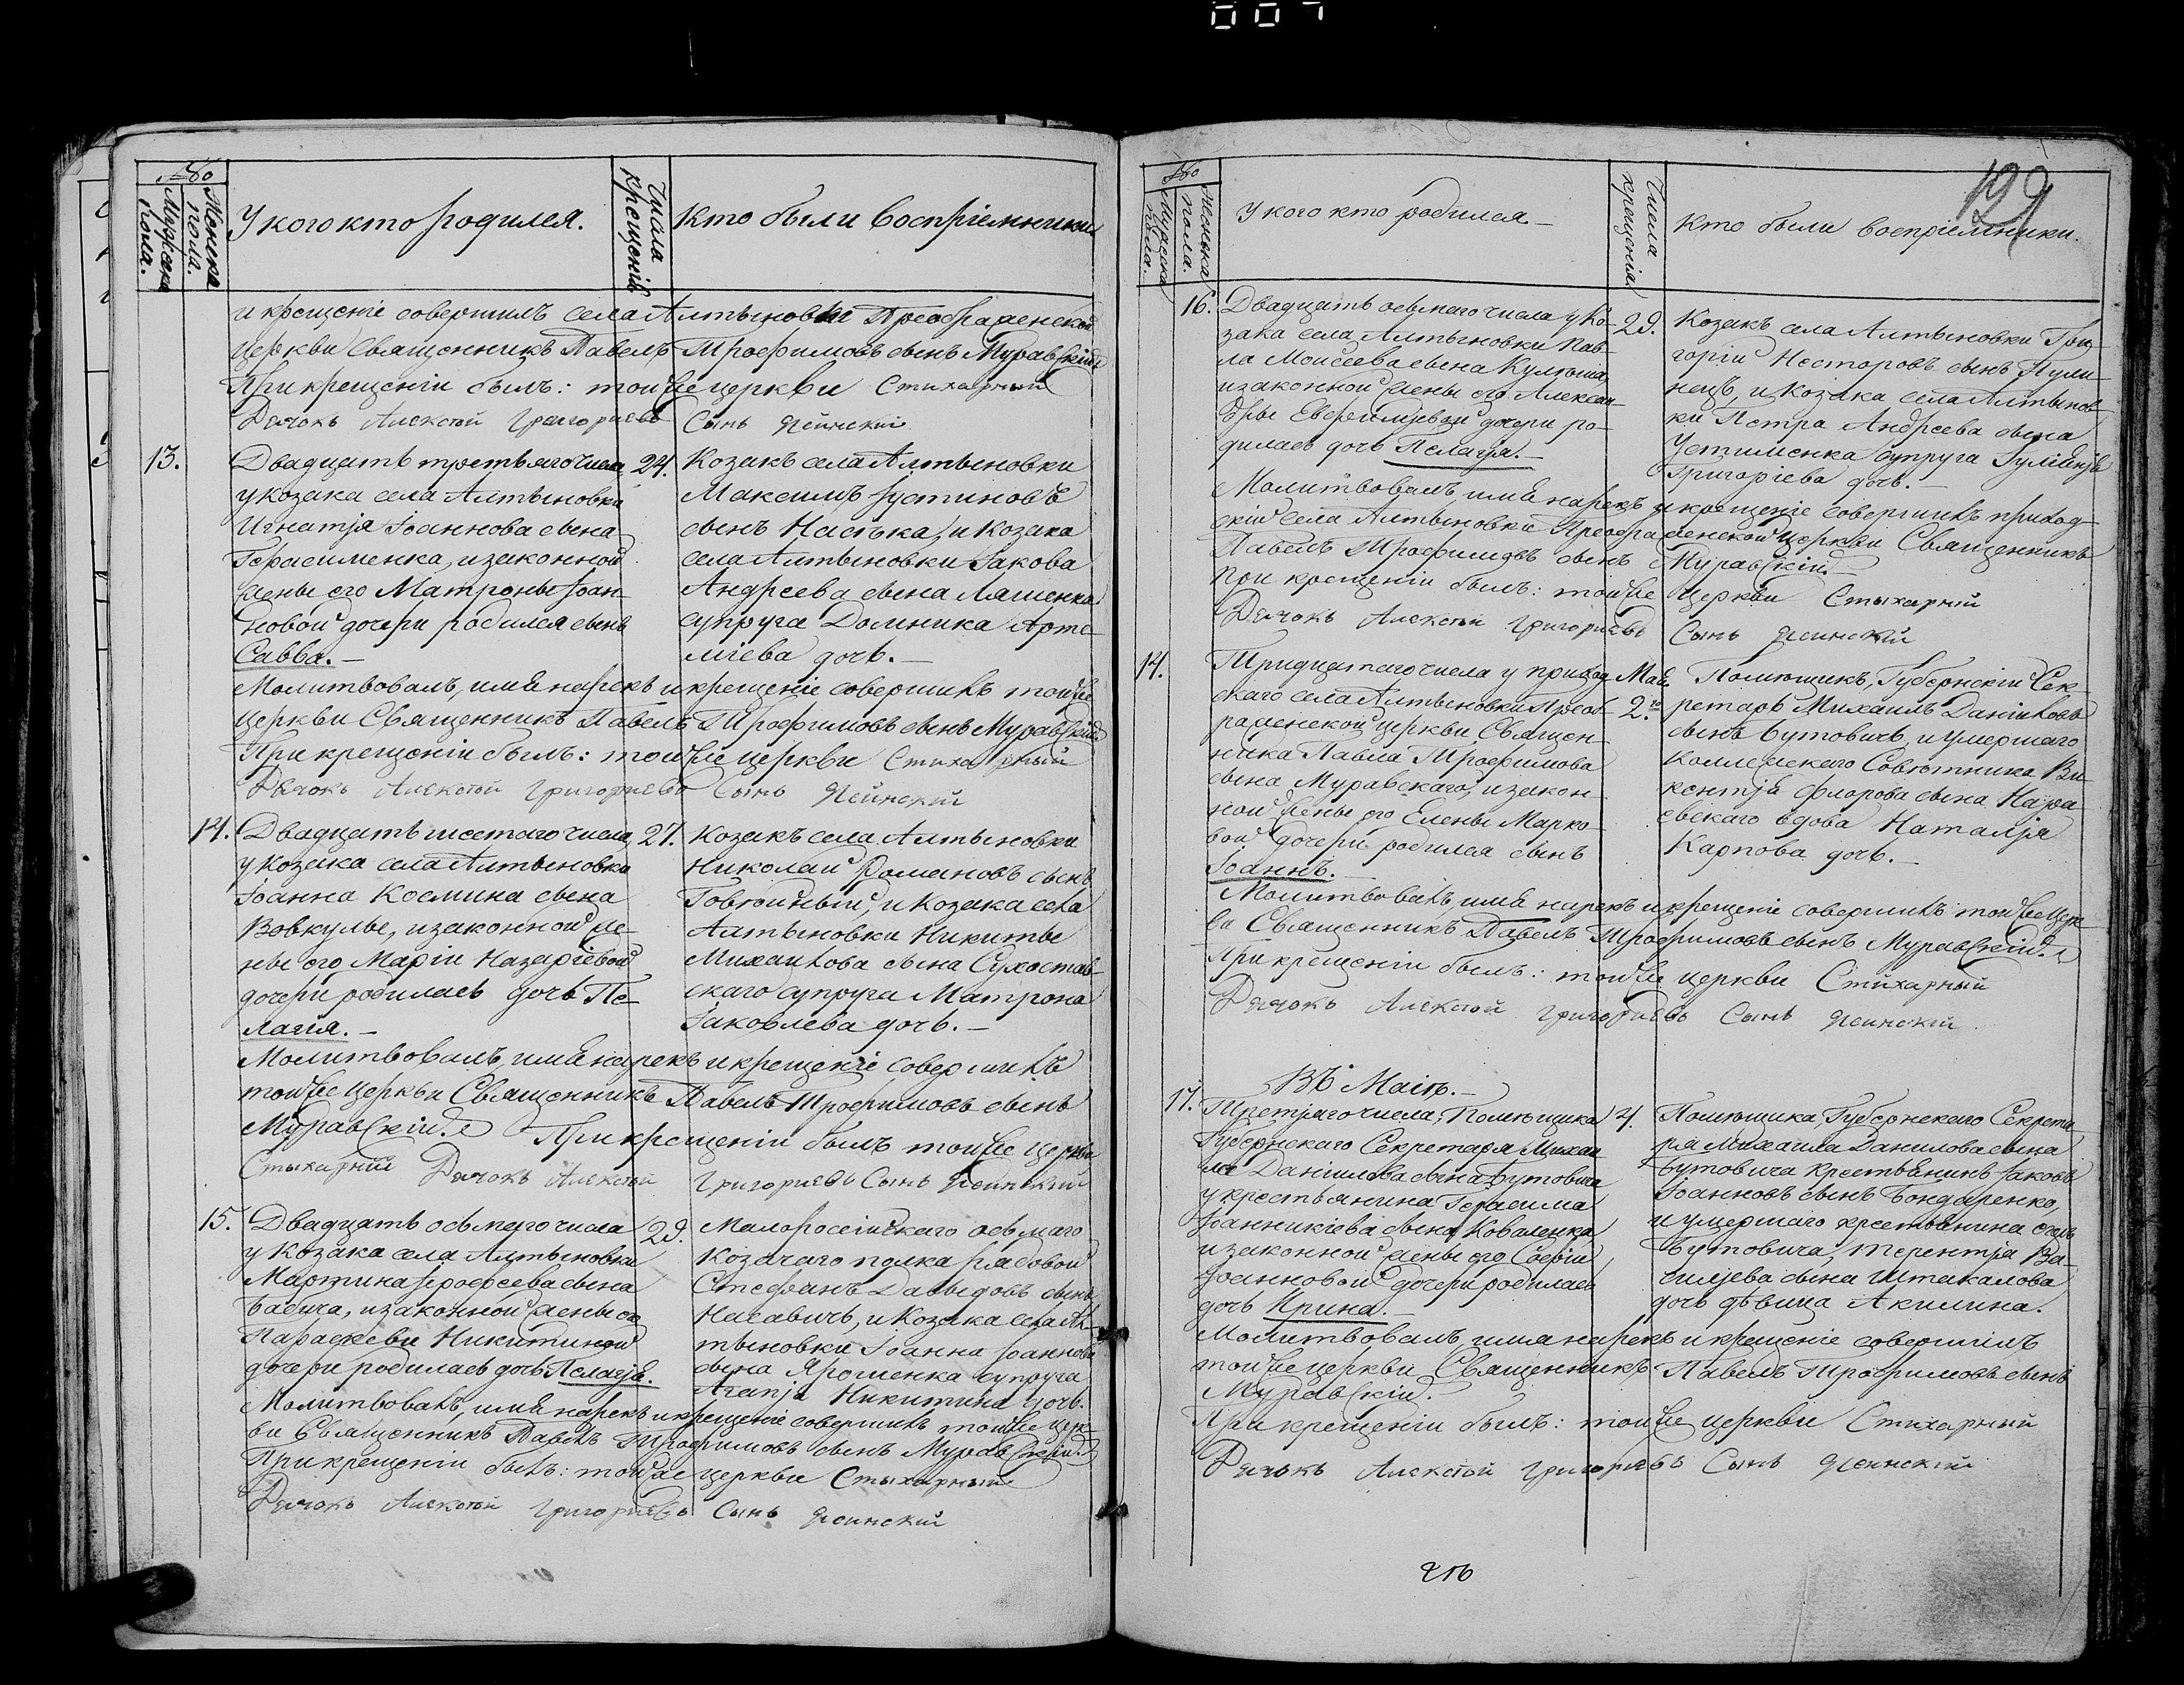 007
№
Мужска пола.
Женска пола.
У кого кто родился.
Числа крещенія
Кто были воспріемники
и крещеніе совершилъ села Алтыновки Преображенской
Церкви Священникъ Павелъ Трофимовъ сынъ Муравскій
При крещеніи былъ: той же церкви Стихарный
Дячокъ Алексѣй Григориевъ Сынъ Ясинскій
13.
Двадцать третьяго числа
у козака села Алтыновки
Игнатія Іоаннова сына
Герасименка, и законной
жены его Матроны Іоан-
новой дочери родился сынъ
Савва.—
24.
Козакъ села Алтыновки
Максимъ Іустиновъ
сынъ Насѣка, и козака
села Алтыновки Іакова
Андреева сына Ляшенка
супруга Домника Арте-
міева дочь.—
Молитвовалъ, имя нарекъ и крещеніе совершилъ той же
Церкви Священникъ Павелъ Трофимовъ сынъ Муравскій
При крещеніи былъ: той же церкви Стихарный
Дячокъ Алексѣй Григориевъ Сынъ Ясинскій
14.
Двадцать шестаго числа
у козака села Алтыновки
Іоанна Космина сына
Вовкулы, и законной же-
ны его Маріи Назаріевой
дочери родилась дочь Пе-
лагія.—
27.
Козакъ села Алтыновки
Николай Романовъ сынъ
Говтяный, и козака села
Алтыновки Никиты
Михаилова сына Сухостав-
скаго супруга Матрона
Іаковлева дочь.—
Молитвовалъ имя нарекъ и крещеніе совершилъ
той же Церкви Священникъ Павелъ Трофимовъ сынъ
Муравскій. При крещеніи былъ той же церкви
Стихарный Дячокъ Алексѣй Григориевъ Сынъ Ясинскій
15.
Двадцать осьмого числа
у козака села Алтыновки
Мартина Іерофеева сына
Бабича, и законной жены его
Параскевы Никитиной
дочери родилась дочь Пелагія.
29.
Малоросійскаго осьмаго
козачаго полка рядовой
Стефанъ Давыдовъ сынъ
и козака села Ал-
тыновки Іоанна Іоаннова
сына Ярошенка супруга
Агапія Никитина дочь.
Молитвовалъ, имя нарекъ и крещеніе совершилъ той же Церк-
ви Священникъ Павелъ Трофимовъ сынъ Муравскій
При крещеніи былъ: той же церкви Стихарный
Дячокъ Алексѣй Григориевъ Сынъ Ясинскій
129
№
Мужска пола.
Женска пола.
У кого кто родился—
Числа крещенія
Кто были воспріемники.
16.
Двадцать осьмаго числа у ко-
зака села Алтыновки Пав-
ла Моисеева сына
и законной жены его Алексан-
дры дочери ро-
дилась дочь Пелагія.—
29.
Козакъ села Алтыновки Гри-
горій Несторовъ сынъ Пули-
нецъ, и козака села Алтынов-
ки Петра Андреева сына
Устименка супруга Іуліянія
Григоріева дочь.—
Молитвовалъ, имя нарекъ и крещеніе совершилъ приход-
скій села Алтыновки Преображенской Церкви Священникъ
Павелъ Трофимовъ сынъ Муравскій
При крещеніи былъ: той же Церкви Стыхарній
Дячокъ Алексѣй Григориевъ Сынъ Ясинскій
14.
Тридцатаго числа у приход-
скаго села Алтыновки Преоб-
раженской церкви Священ-
ника Павла Трофимова
сына Муравскаго, и закон-
ной жены его Елены Марко-
вой дочери родился сынъ
Іоаннъ.—
Маія
2го
Помѣщикъ, Губернскій Сек-
ретарь Михаилъ Даніиловъ
сынъ Бутовичъ, и умершаго
Коллежскаго Совѣтника Ви-
кентія Флорова сына
вдова Наталія
Карпова дочь.—
Молитвовалъ, имя нарекъ и крещеніе совершилъ той же Церк-
ви Священникъ Павелъ Трофимовъ сынъ Муравскій.
При крещеніи былъ: той же церкви Стихарный
Дячокъ Алексѣй Григориевъ Сынъ Ясинскій
Въ Маіѣ.—
17.
Третіяго числа, Помѣщика
Губернскаго Секретаря Михаи-
ла Данилова сына Бутовича
у крестьянина Герасима
Іоанникіева сына Коваленка
и законной жены его Софіи
Іоанновой дочери родилась
дочь Ирина.—
4.
Помѣщика, Губернскаго Секрета-
ря Михаила Данилова сына
Бутовича крестьянинъ Іаковъ
Іоанновъ сынъ Бондаренко,
и умершаго крестьянина
Бутовича, Терентія Ва-
силіева сына Штакалова
дочь дѣвица Акилина.
Молитвовалъ, имя нарекъ и крещеніе совершилъ
той же церкви Священникъ Павелъ Трофимовъ сынъ
Муравскій.
При крещеніи былъ: той же церкви Стихарный
Дячокъ Алексѣй Григориевъ Сынъ Ясинскій